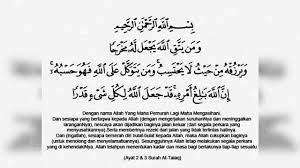 بِسْمِ اللَّهِ الرَّحْمَٰنِ الرَّحِيمِ
وَمَن يَتَّقِ اللَّهَ يَجْعَل لَّهُ مَخْرَجًا
وَيَرْزُقْهُ مِنْ حَيْثُ لَا يَحْتَسِبُ ۚ وَمَن يَتَوَكَّلْ عَلَى اللَّهِ فَهُوَ حَسْبُهُ ۚ
إِنَّ اللَّهَ بَالِغُ أَمْرِهِ ۚ قَدْ جَعَلَ اللَّهُ لِكُلِّ شَيْءٍ قَدْرًا
Dengan nama Allah Yang Maha Pemurah Lagi Maha Mengasihani.
Dan sesiapa yang bertaqwa kepada Allah (dengan mengerjakan suruhanNya dan meninggalkan
laranganNya), nescaya akan dijadikan baginya jalan keluar (dari segala perkara yang
menyusahkannya). Serta memberinya rezeki dari jalan yang tidak terlintas di hatinya.
Dan (Ingatlah), sesiapa berserah diri bulat-bulat kepada Allah, maka Allah cukuplah baginya
(untuk menolong dan menyelamatkannya). Sesungguhnya Allah tetap melakukan segala perkara
yang dikehendakiNya. Allah telahpun menentukan kadar dan masa bagi berlakunya tiap-tiap sesuatu.
(Ayat 2 & 3 Surah At-Talaq)